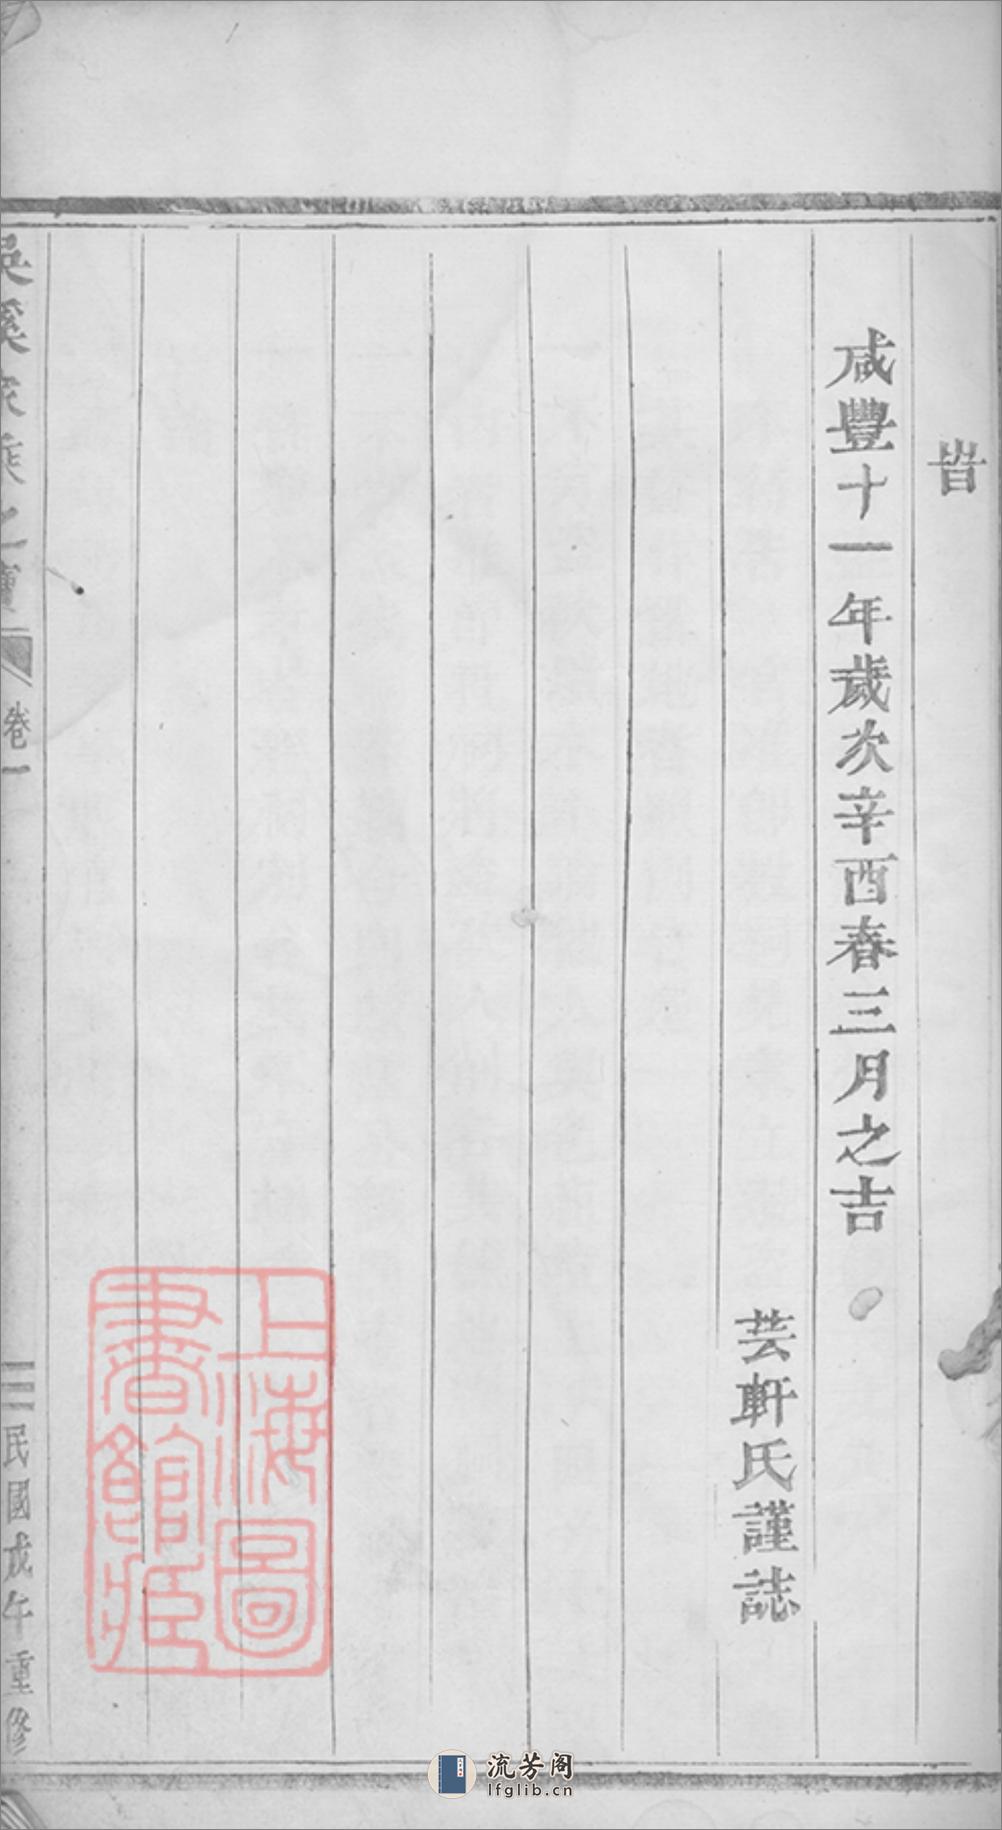 旹
咸豐十一年歲次辛酉春三月之吉
芸軒氏謹誌
卷一
三
民國戊午重修
上海圖
書館藏
流芳阁
lfglib.cn